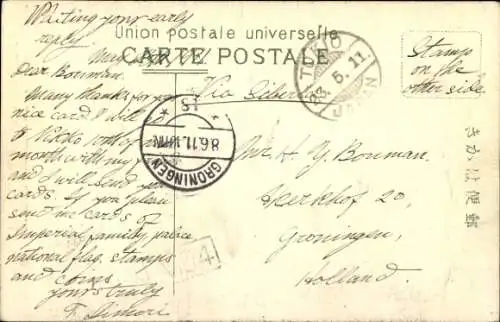 Union postale universelle
CARTE POSTALE
Waiting your early
reply.
Dear Bouman.
Many thanks for your
nice card. I will go
to Nikko 10th of
month with my
and I will send you
cards. If you please
send me cards of
Imperial family, palace,
national flag, stamps
and coins
yours truly
Via Siberia
Mr H. Y. Bouman.
Akerkhof 20,
Groningen,
Holland.
Stamp
on the
other side.
TOKYO
23.5.11
JAPAN
GRONINGEN
きがは便郵